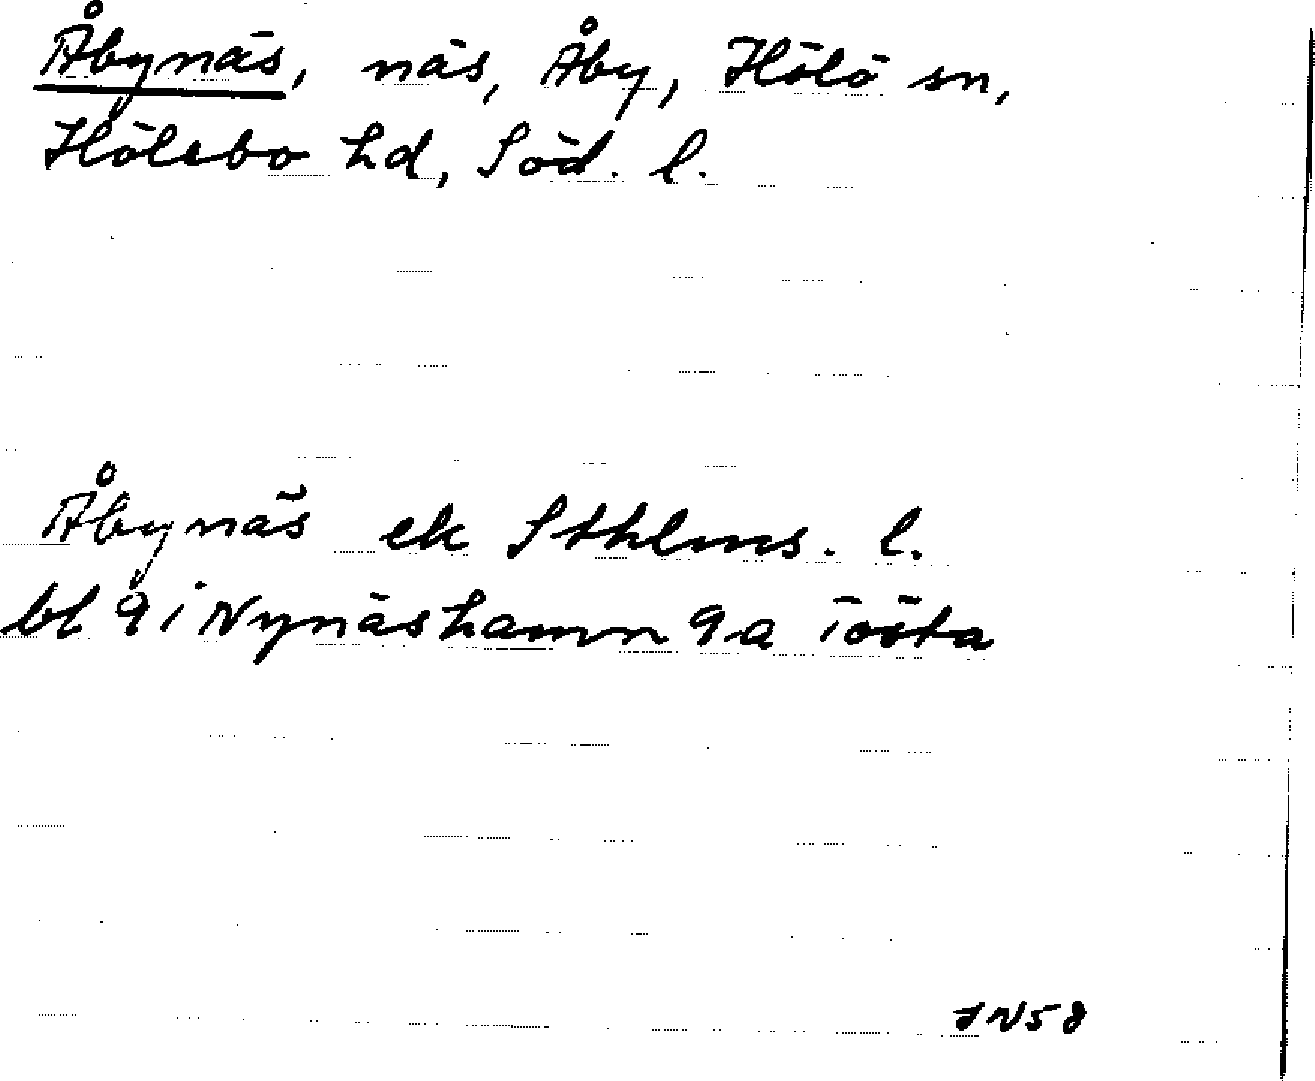 Åbynäs, näs, Åby, Hölö sn,
Hölebo hd, Söd. l.
Åbynäs ek Sthlms. l.
bl 9 i Nynäshamn 9 a
JN58